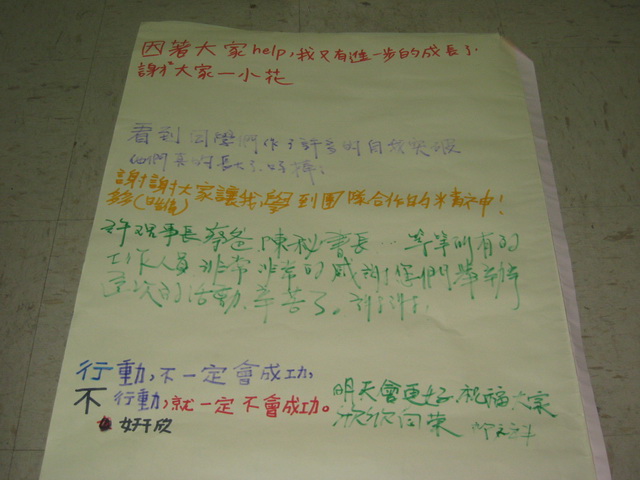 因著大家help,我又有進一步的成長了.
謝謝大家 一小花
看到同學們作了許多的自我突破
他們真的長大了,好棒!
謝謝大家讓我學到團隊合作的精神!
許理事長 蔡爸 陳祕書長…等等所有的
工作人員非常非常的感謝您們舉辦
這次的活動.辛苦了。謝謝.
行動,不一定會成功,
不行動,就一定不會成功。
明天會更好 祝福大家
欣欣向榮